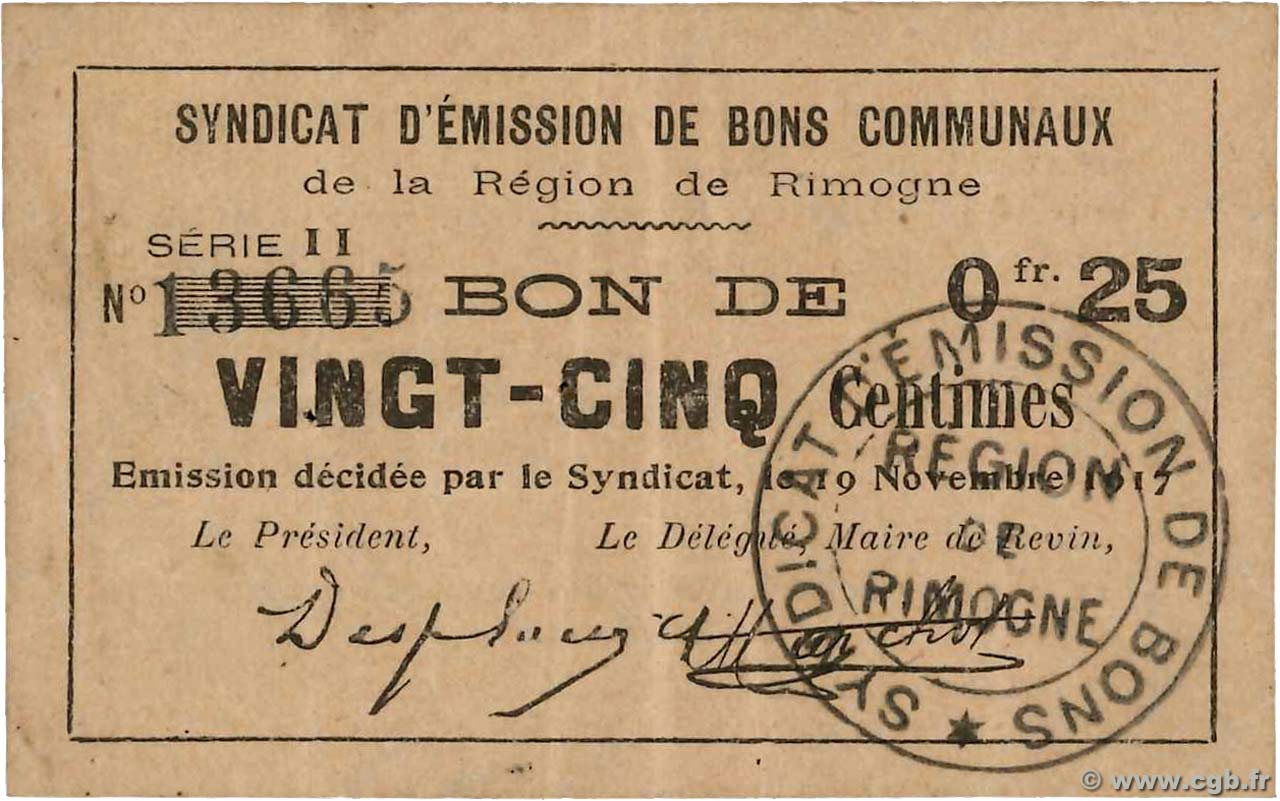 SYNDICAT D'ÉMISSION DE BONS COMMUNAUX
de la Région de Rimogne
SÉRIE II
Nº 13665 BON DE 0 fr. 25
VINGT-CINQ Centimes
Emission décidée par le Syndicat, le 19 Novembre 1917
Le Président, Le Délégué, Maire de Revin,
SYNDICAT D'ÉMISSION DE BONS
RÉGION
DE
RIMOGNE
© www.cgb.fr